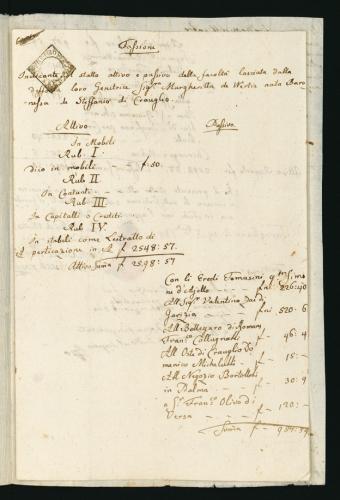 Passione
Indicante lo stato attivo e passivo della facoltà lasciata dalla
loro Genitrice Sigra Margheritta de Wertis nata Baro-
nessa de Steffanio di Crauglio.
Attivo
Passivo
In Mobili
Rub I.
Dico in mobili - - f 50.
Rub II.
In Contanti - -
Rub III.
In Capitalli o Crediti
Rub IV.
In stabili come
particazione in A f 2548:57.
Attivo Suma f 2598:57
Con li Eredi Tomasini
ne d'Ajello - - f 226:40
All Sigr Valentino
Gorizia - - f 520:6
All Bottegaro di Romans
Franco - f 46:4
All Oste di Crauglio Do-
menico - f 15:-
All Negozio Bortolotti
in Palma - - f 30:9
a Sr Franco Olivo di
Versa - - - f 120:-
Suma f